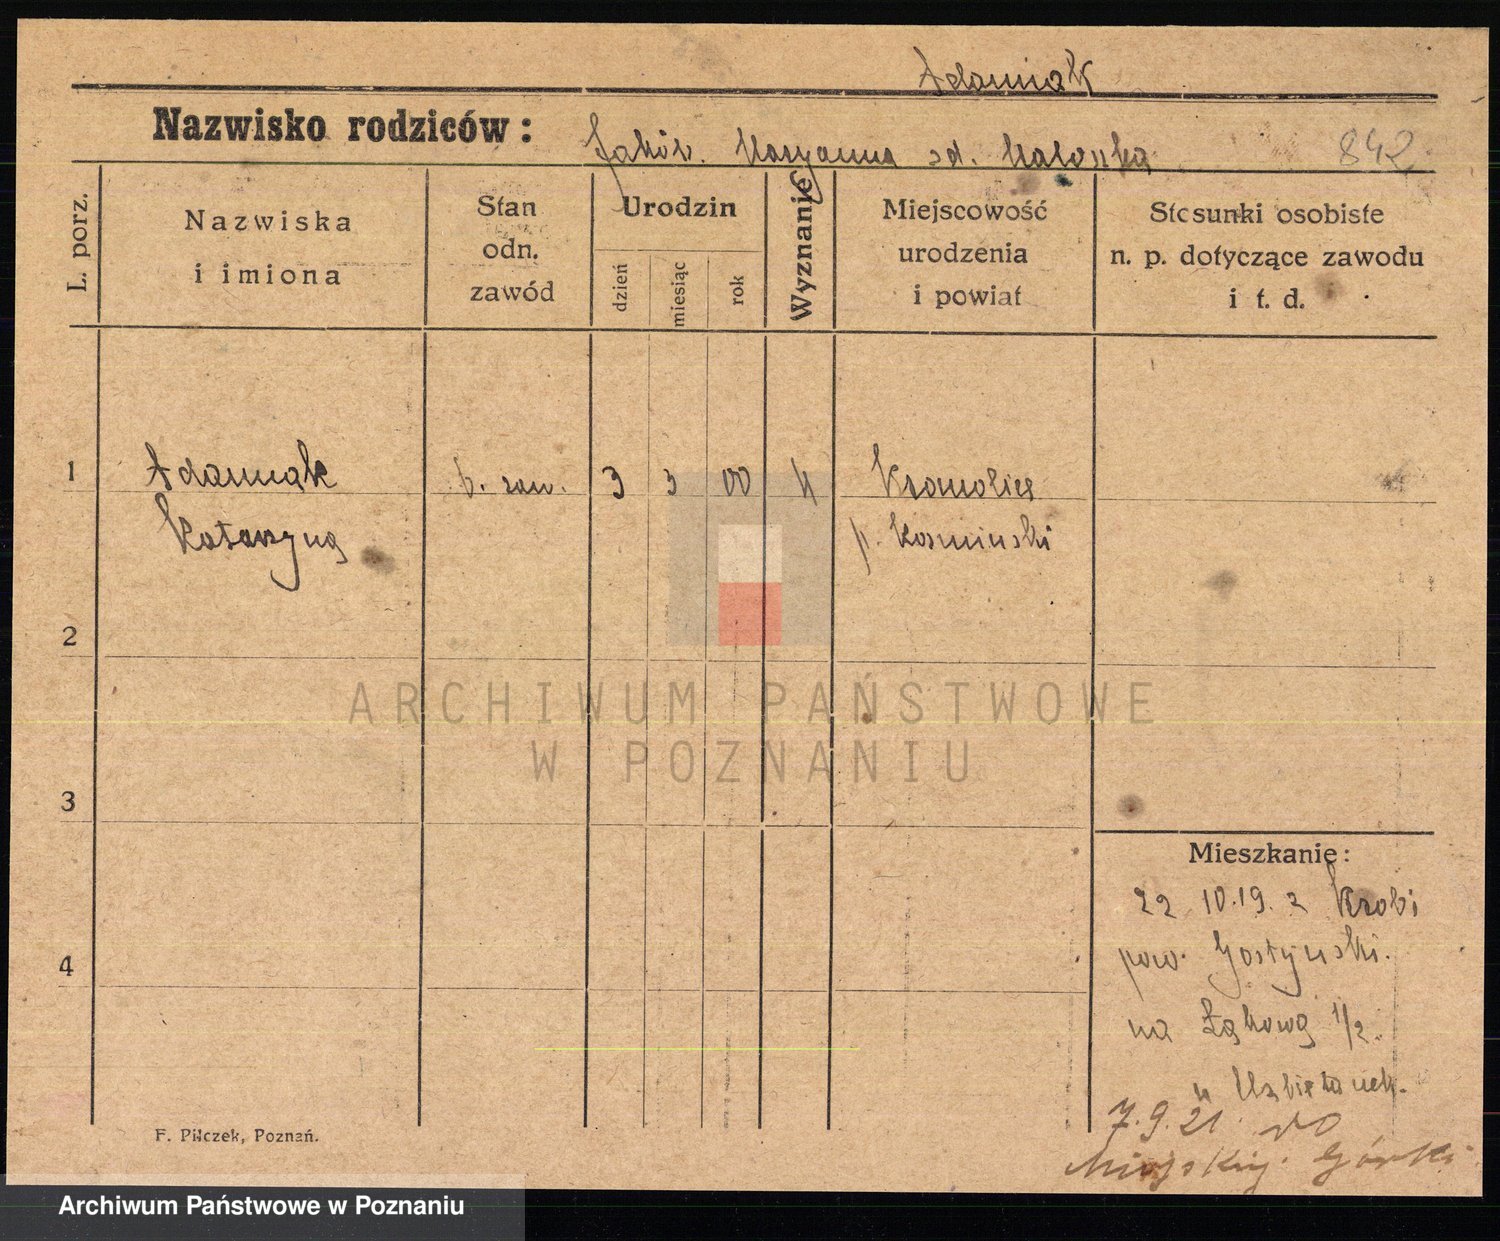 Adamiak
Nazwisko rodziców: Jakób. Maryanna zd.
842.
L. porz.
Nazwiska
i imiona
Stan
odn.
zawód
Urodzin
dzień
miesiąc
rok
Wyznanie
Miejscowość
urodzenia
i powiat
Stosunki osobiste
n. p. dotyczące zawodu
i t. d.
1 Adamiak b. zaw. 3 3 00 k
Katarzyna p. Kosminski
2
3
4
ARCHIWUM PAŃSTWOWE
W POZNANIU
Mieszkanie:
22 10.19. z Krobi
pow. Gostyński.
na Łąkową 1/2.
u
7.9.21. do
Miejskiej Górki
F. Pilczek, Poznań.
Archiwum Państwowe w Poznaniu